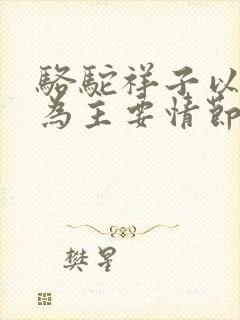 駱駝祥子以
為主要情節
樊星